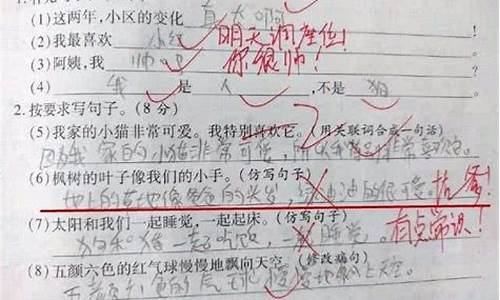 (1)这两年,小区的变化 真大啊
(2)我最喜欢 小红 明天调座位!
(3)阿姨,我 帅吧 你很帅!
(4) 我 是 人 ,不是 狗
2.按要求写句子。(8分)
(5)我家的小猫非常可爱。我特别喜欢它。(用关联词合成一句话)
因为我家的小猫非常可爱,所以我非常喜欢它。
(6)枫树的叶子像我们的小手。(仿写句子)
地上的草地像爸爸的头发,绿油油的很可爱。
(7)太阳和我们一起睡觉,一起起床。(仿写句子)
一起吃饭,一起睡觉。 有点常识!
(8)五颜六色的红气球慢慢地飘向天空。(修改病句)
五颜六色的气球慢慢地飘上天空。